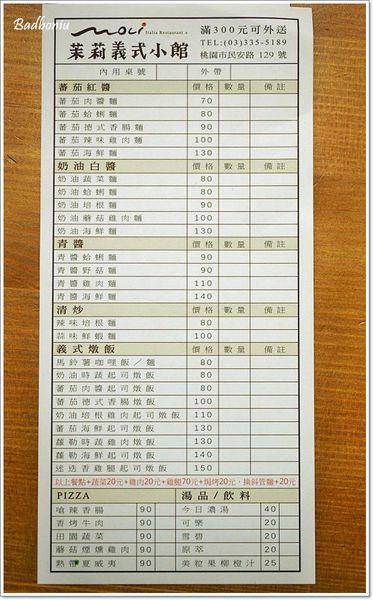 Badboniu
moli Italia Restaurant
滿300元可外送
TEL:(03)335-5189
茉莉義式小館 桃園市民安路 129 號
內用桌號 外帶
蕃茄紅醬 價格 數量 備註
蕃茄肉醬麵 70
蕃茄蛤蜊麵 80
蕃茄德式香腸麵 90
蕃茄辣味雞肉麵 100
蕃茄海鮮麵 130
奶油白醬 價格 數量 備註
奶油蔬菜麵 80
奶油蛤蜊麵 80
奶油培根麵 90
奶油蘑菇雞肉麵 100
奶油海鮮麵 130
青醬 價格 數量 備註
青醬蛤蜊麵 90
青醬野菇麵 90
青醬雞肉麵 110
青醬海鮮麵 140
清炒 價格 數量 備註
辣味培根麵 80
蒜味鮮蝦麵 100
義式燉飯 價格 數量 備註
馬鈴薯咖哩飯／麵 80
奶油時蔬起司燉飯 80
蕃茄肉醬起司燉飯 80
蕃茄德式香腸燉飯 100
奶油培根雞肉起司燉飯 110
蕃茄海鮮起司燉飯 130
蘿勒時蔬起司燉飯 130
蘿勒海鮮起司燉飯 140
迷迭香雞腿起司燉飯 150
以上餐點+蔬菜20元+雞肉20元+雞腿70元+焗烤20元，換斜管麵+20元
PIZZA 湯品／飲料
嗆辣香腸 90 今日濃湯 40
香烤牛肉 90 可樂 20
田園蔬菜 90 雪碧 20
蘑菇煙燻雞肉 90 原萃 20
熱帶夏威夷 90 美粒果柳橙汁 25